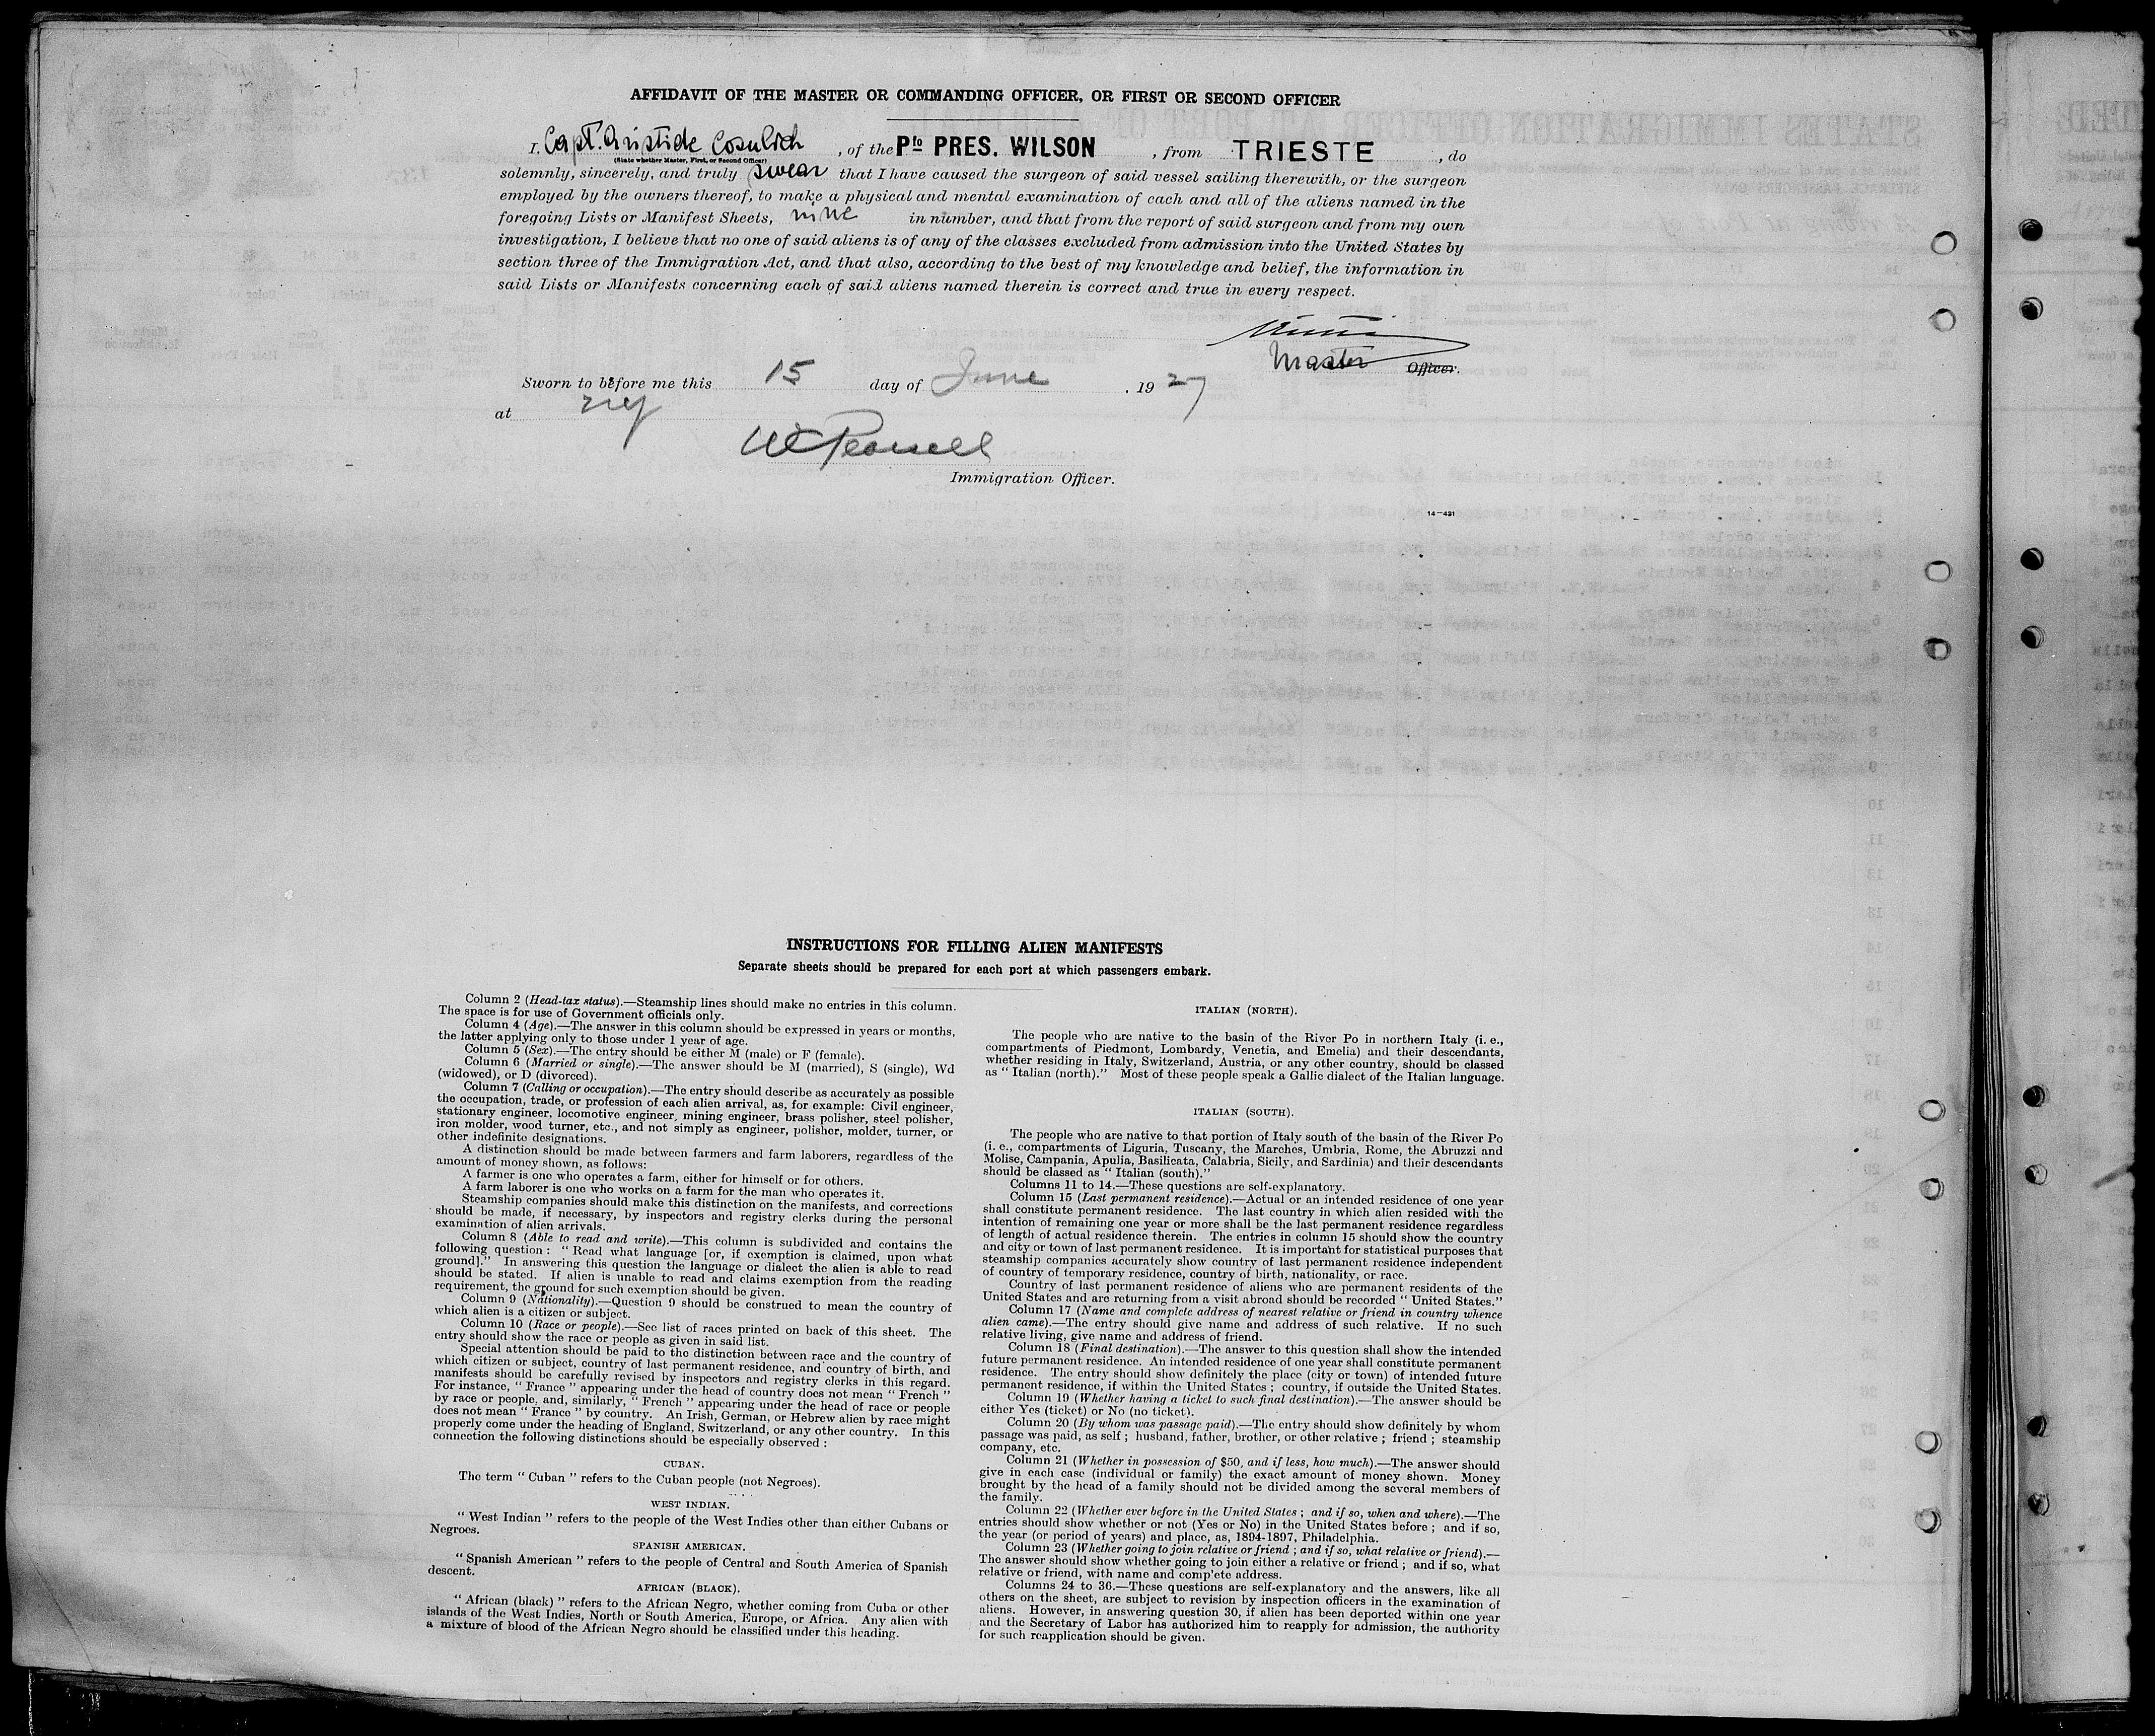 AFFIDAVIT OF THE MASTER OR COMMANDING OFFICER, OR FIRST OR SECOND OFFICER
I, Capt. Aristide Cosulich, of the Pfo PRES. WILSON, from TRIESTE, do
(State whether Master, First, or Second Officer)
solemnly, sincerely, and truly swear that I have caused the surgeon of said vessel sailing therewith, or the surgeon
employed by the owners thereof, to make a physical and mental examination of each and all of the aliens named in the
foregoing Lists or Manifest Sheets, nine in number, and that from the report of said surgeon and from my own
investigation, I believe that no one of said aliens is of any of the classes excluded from admission into the United States by
section three of the Immigration Act, and that also, according to the best of my knowledge and belief, the information in
said Lists or Manifests concerning each of said aliens named therein is correct and true in every respect.
Master Officer.
Sworn to before me this 15 day of June, 1927
at NY
Immigration Officer.
14-421
INSTRUCTIONS FOR FILLING ALIEN MANIFESTS
Separate sheets should be prepared for each port at which passengers embark.
Column 2 (Head-tax status).—Steamship lines should make no entries in this column.
The space is for use of Government officials only.
Column 4 (Age).—The answer in this column should be expressed in years or months,
the latter applying only to those under 1 year of age.
Column 5 (Sex).—The entry should be either M (male) or F (female).
Column 6 (Married or single).—The answer should be M (married), S (single), Wd
(widowed), or D (divorced).
Column 7 (Calling or occupation).—The entry should describe as accurately as possible
the occupation, trade, or profession of each alien arrival, as, for example: Civil engineer,
stationary engineer, locomotive engineer, mining engineer, brass polisher, steel polisher,
iron molder, wood turner, etc., and not simply as engineer, polisher, molder, turner, or
other indefinite designations.
A distinction should be made between farmers and farm laborers, regardless of the
amount of money shown, as follows:
A farmer is one who operates a farm, either for himself or for others.
A farm laborer is one who works on a farm for the man who operates it.
Steamship companies should make this distinction on the manifests, and corrections
should be made, if necessary, by inspectors and registry clerks during the personal
examination of alien arrivals.
Column 8 (Able to read and write).—This column is subdivided and contains the
following question : " Read what language [or, if exemption is claimed, upon what
ground]." In answering this question the language or dialect the alien is able to read
should be stated. If alien is unable to read and claims exemption from the reading
requirement, the ground for such exemption should be given.
Column 9 (Nationality).—Question 9 should be construed to mean the country of
which alien is a citizen or subject.
Column 10 (Race or people).—See list of races printed on back of this sheet. The
entry should show the race or people as given in said list.
Special attention should be paid to the distinction between race and the country of
which citizen or subject, country of last permanent residence, and country of birth, and
manifests should be carefully revised by inspectors and registry clerks in this regard.
For instance, " France " appearing under the head of country does not mean " French "
by race or people, and, similarly, " French " appearing under the head of race or people
does not mean " France " by country. An Irish, German, or Hebrew alien by race might
properly come under the heading of England, Switzerland, or any other country. In this
connection the following distinctions should be especially observed :
CUBAN.
The term " Cuban " refers to the Cuban people (not Negroes).
WEST INDIAN.
" West Indian " refers to the people of the West Indies other than either Cubans or
Negroes.
SPANISH AMERICAN.
" Spanish American " refers to the people of Central and South America of Spanish
descent.
AFRICAN (BLACK).
" African (black) " refers to the African Negro, whether coming from Cuba or other
islands of the West Indies, North or South America, Europe, or Africa. Any alien with
a mixture of blood of the African Negro should be classified under this heading.
ITALIAN (NORTH).
The people who are native to the basin of the River Po in northern Italy (i. e.,
compartments of Piedmont, Lombardy, Venetia, and Emelia) and their descendants,
whether residing in Italy, Switzerland, Austria, or any other country, should be classed
as " Italian (north)." Most of these people speak a Gallic dialect of the Italian language.
ITALIAN (SOUTH).
The people who are native to that portion of Italy south of the basin of the River Po
(i. e., compartments of Liguria, Tuscany, the Marches, Umbria, Rome, the Abruzzi and
Molise, Campania, Apulia, Basilicata, Calabria, Sicily, and Sardinia) and their descendants
should be classed as " Italian (south)."
Columns 11 to 14.—These questions are self-explanatory.
Column 15 (Last permanent residence).—Actual or an intended residence of one year
shall constitute permanent residence. The last country in which alien resided with the
intention of remaining one year or more shall be the last permanent residence regardless
of length of actual residence therein. The entries in column 15 should show the country
and city or town of last permanent residence. It is important for statistical purposes that
steamship companies accurately show country of last permanent residence independent
of country of temporary residence, country of birth, nationality, or race.
Country of last permanent residence of aliens who are permanent residents of the
United States and are returning from a visit abroad should be recorded " United States."
Column 17 (Name and complete address of nearest relative or friend in country whence
alien came).—The entry should give name and address of such relative. If no such
relative living, give name and address of friend.
Column 18 (Final destination).—The answer to this question shall show the intended
future permanent residence. An intended residence of one year shall constitute permanent
residence. The entry should show definitely the place (city or town) of intended future
permanent residence, if within the United States ; country, if outside the United States.
Column 19 (Whether having a ticket to such final destination).—The answer should be
either Yes (ticket) or No (no ticket).
Column 20 (By whom was passage paid).—The entry should show definitely by whom
passage was paid, as self ; husband, father, brother, or other relative ; friend ; steamship
company, etc.
Column 21 (Whether in possession of $50, and if less, how much).—The answer should
give in each case (individual or family) the exact amount of money shown. Money
brought by the head of a family should not be divided among the several members of
the family.
Column 22 (Whether ever before in the United States ; and if so, when and where).—The
entries should show whether or not (Yes or No) in the United States before ; and if so,
the year (or period of years) and place, as, 1894-1897, Philadelphia.
Column 23 (Whether going to join relative or friend ; and if so, what relative or friend).—
The answer should show whether going to join either a relative or friend ; and if so, what
relative or friend, with name and complete address.
Columns 24 to 36.—These questions are self-explanatory and the answers, like all
others on the sheet, are subject to revision by inspection officers in the examination of
aliens. However, in answering question 30, if alien has been deported within one year
and the Secretary of Labor has authorized him to reapply for admission, the authority
for such reapplication should be given.